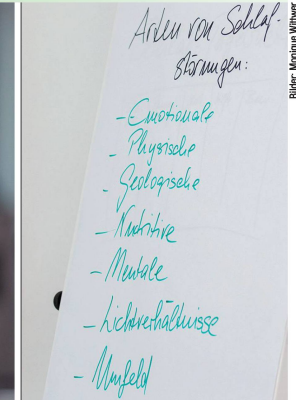 Arten von Schlaf-
störungen:
- Emotionale
- Physische
- Geologische
- Nutritive
- Mentale
- Lichtverhältnisse
- Umfeld
Bilder: Monique Wittwer